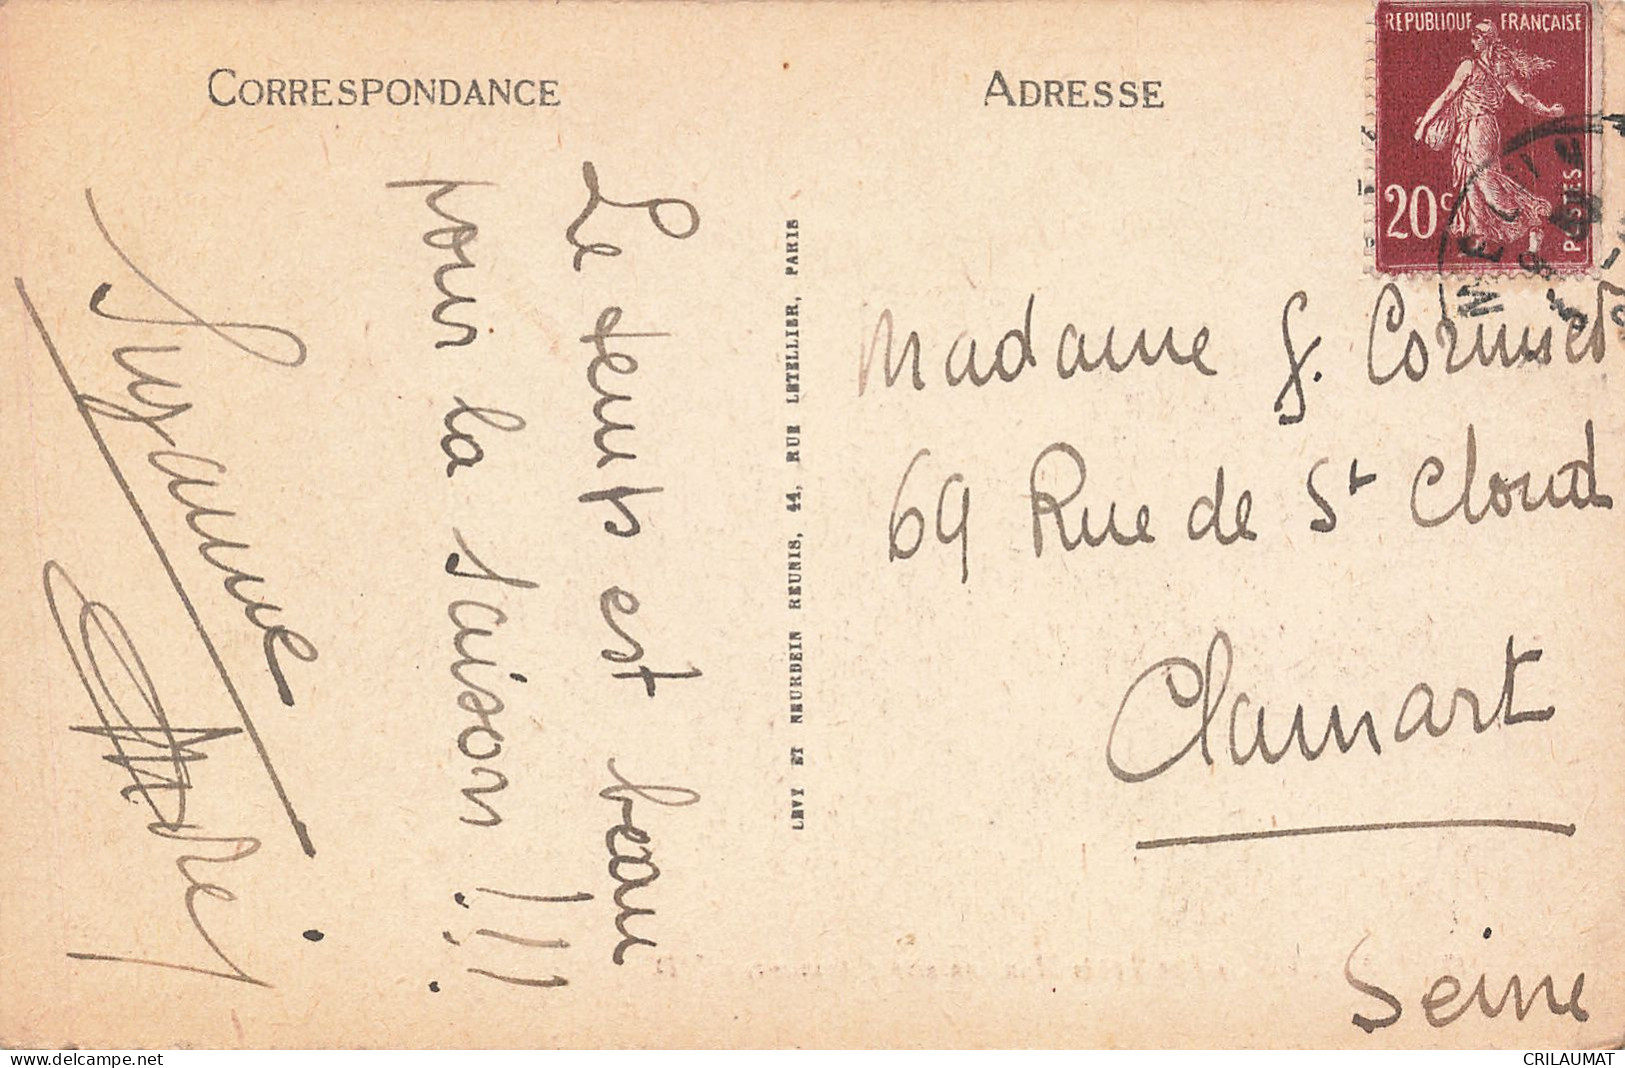 CORRESPONDANCE
Le temps est beau
pour la saison !!!
Suzanne
LEVY ET NEURDEIN REUNIS, 44, RUE LETELLIER, PARIS
ADRESSE
REPUBLIQUE FRANÇAISE
20c
POSTES
Madame G. Cornuset
69 Rue de St Cloud
Clamart
Seine
www.delcampe.net
CRILAUMAT